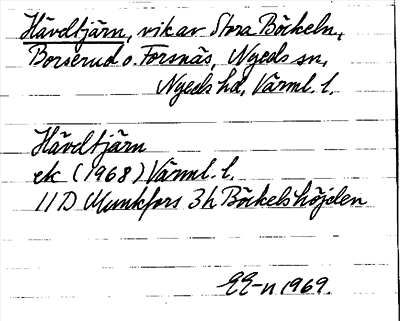 Hävdtjärn, vik av Stora Böckeln,
Borserud o. Forsnäs, Nyeds sn,
Nyeds hd, Värml. l.
Hävdtjärn
ek (1968) Värml. l.
11D Munkfors 3h Böckelshöjden
EE-n 1969.